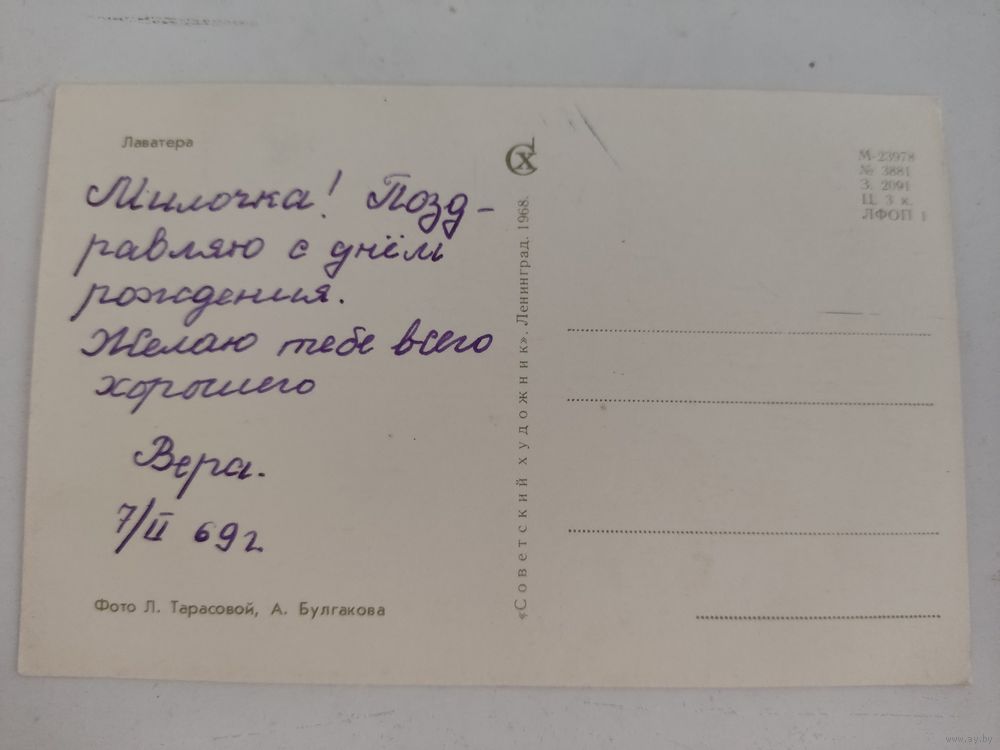 Лаватера
Милочка! Позд-
равляю с днём
рождения.
Желаю тебе всего
хорошего
Вера.
7/II 69 г.
Фото Л. Тарасовой, А. Булгакова
СХ
«Советский художник». Ленинград. 1968.
М-23978
№ 3881
З. 2091
Ц. 3 к.
ЛФОП 1
www.ay.by